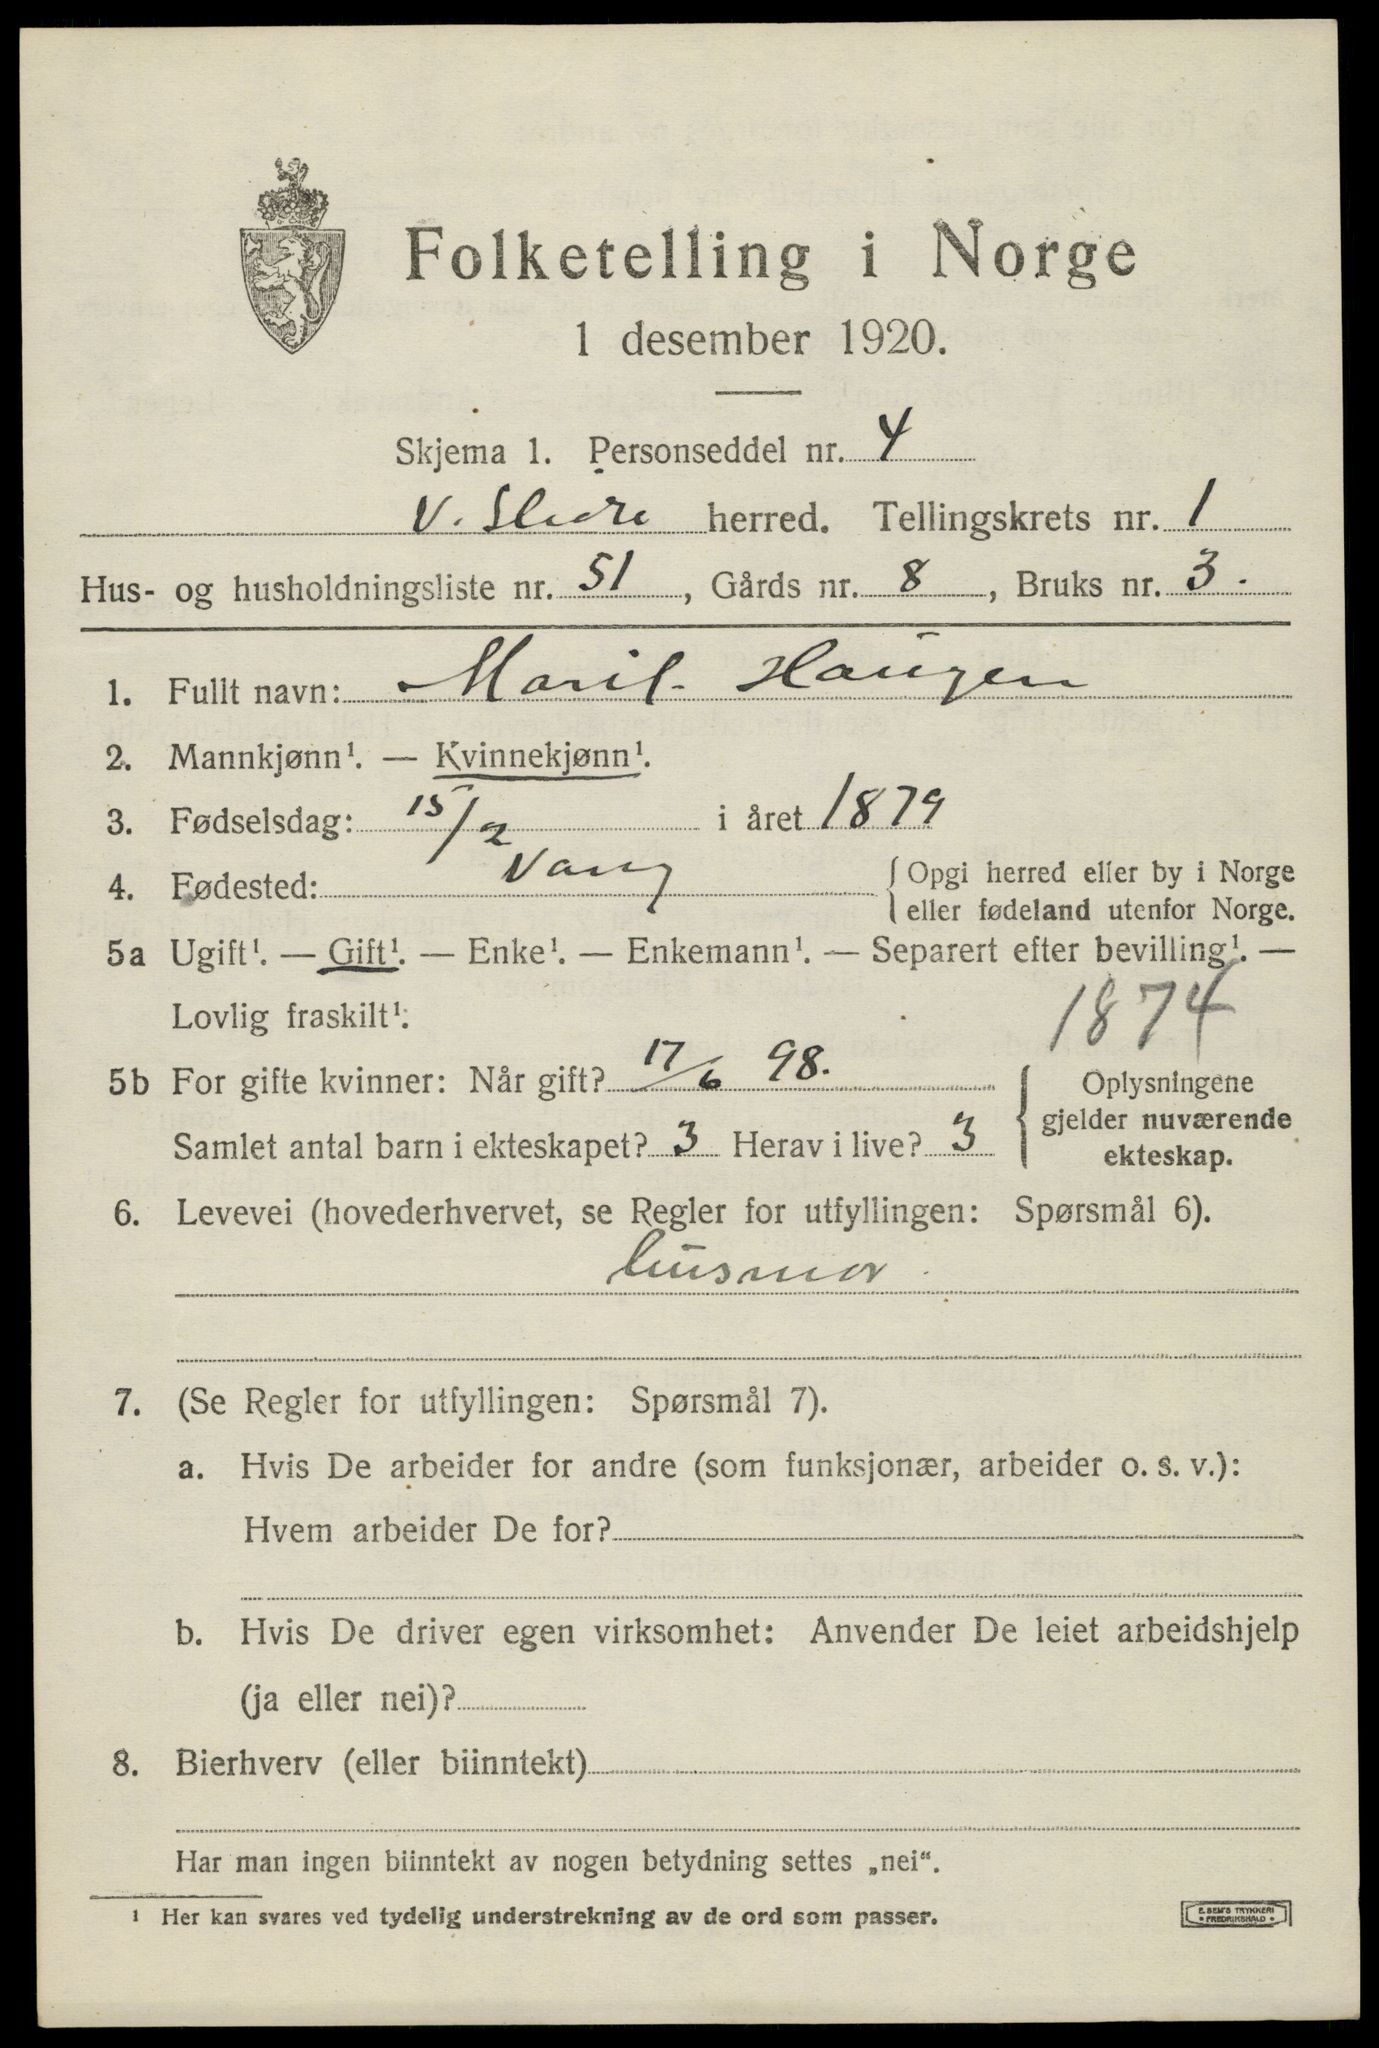 Folketelling i Norge
1 desember 1920.
Skjema 1. Personseddel nr. 4
V. Slidre herred. Tellingskrets nr. 1
Hus- og husholdningsliste nr. 51, Gårds nr. 8, Bruks nr. 3.
1. Fullt navn: Marit Haugen
2. Mannkjønn¹. — Kvinnekjønn¹.
3. Fødselsdag: 15/2 i året 1879
4. Fødested: Vang { Opgi herred eller by i Norge
eller fødeland utenfor Norge.
5a Ugift¹. — Gift¹. — Enke¹. — Enkemann¹. — Separert efter bevilling¹. —
Lovlig fraskilt¹. 1874
5b For gifte kvinner: Når gift? 17/6 98. { Oplysningene
gjelder nuværende
Samlet antal barn i ekteskapet? 3 Herav i live? 3 ekteskap.
6. Levevei (hovederhvervet, se Regler for utfyllingen: Spørsmål 6).
husmor.
7. (Se Regler for utfyllingen: Spørsmål 7).
a. Hvis De arbeider for andre (som funksjonær, arbeider o. s. v.):
Hvem arbeider De for?
b. Hvis De driver egen virksomhet: Anvender De leiet arbeidshjelp
(ja eller nei)?
8. Bierhverv (eller biinntekt)
Har man ingen biinntekt av nogen betydning settes „nei“.
¹ Her kan svares ved tydelig understrekning av de ord som passer.
E. SEM'S TRYKKERI
• FREDRIKSHALD •